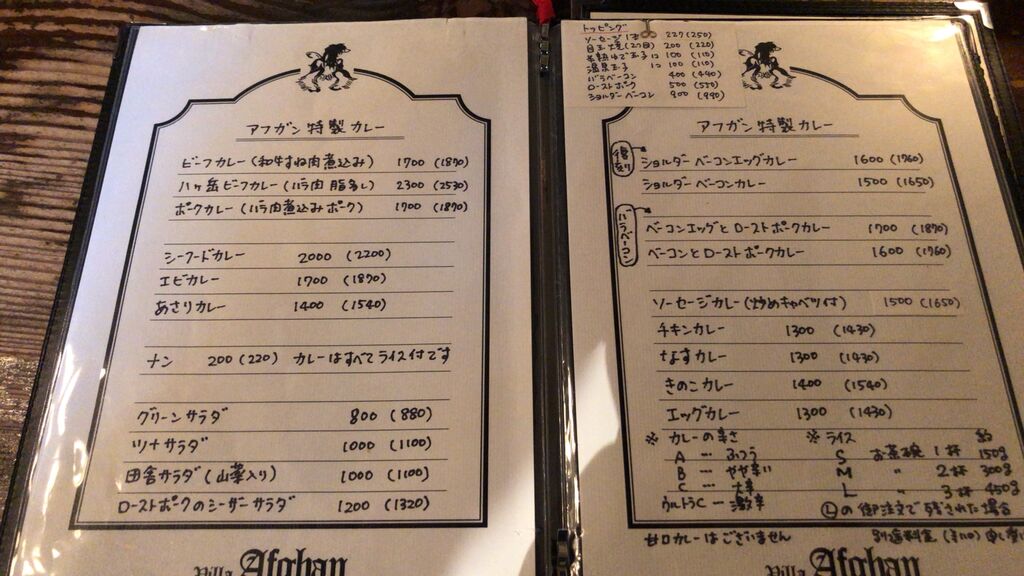 アフガン 特製 カレー
ビーフカレー(和牛すね肉煮込み) 1700 (1870)
八ヶ岳ビーフカレー(バラ肉 脂多し) 2300 (2530)
ポークカレー(バラ肉煮込みポーク) 1700 (1870)
シーフードカレー 2000 (2200)
エビカレー 1700 (1870)
あさりカレー 1400 (1540)
ナン 200 (220) カレーはすべてライス付です
グリーンサラダ 800 (880)
ツナサラダ 1000 (1100)
田舎サラダ(山菜入り) 1000 (1100)
ローストポークのシーザーサラダ 1200 (1320)
Villa Afghan
トッピング
ソーセージ 1本 227 (250)
目玉焼(2コ目) 200 (220)
半熟ゆで玉子 1コ 100 (110)
温泉玉子 1コ 100 (110)
バラベーコン 400 (440)
ローストポーク 500 (550)
ショルダーベーコン 900 (990)
アフガン 特製 カレー
ショルダーベーコンエッグカレー 1600 (1760)
ショルダーベーコンカレー 1500 (1650)
バラベーコン
ベーコンエッグとローストポークカレー 1700 (1870)
ベーコンとローストポークカレー 1600 (1760)
ソーセージカレー(炒めキャベツ付) 1500 (1650)
チキンカレー 1300 (1430)
なすカレー 1300 (1430)
きのこカレー 1400 (1540)
エッグカレー 1300 (1430)
※ カレーの辛さ ※ ライス 約
A … ふつう S お茶碗 1杯 150g
B … やや辛い M 〃 2杯 300g
C … 大辛 L 〃 3杯 450g
ウルトラC ー 激辛 Ⓛの御注文で残された場合
甘口カレーはございません 別途料金(¥110)申し
Villa Afghan